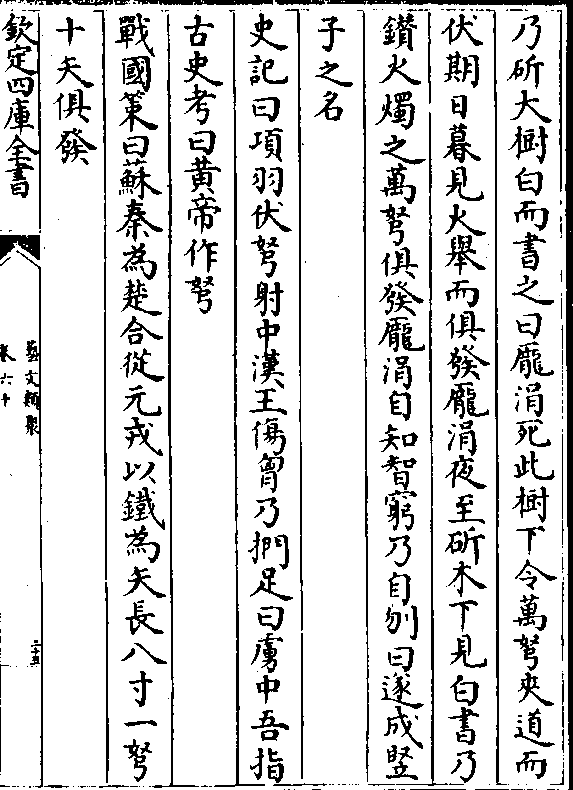 乃斫大樹白而書之曰龐涓死此樹下令萬弩夾道而
伏期日暮見火舉而俱發龐涓夜至斫木下見白書乃
鑚火燭之萬弩俱發龐涓自知智窮乃自刎曰遂成竪
子之名
史記曰項羽伏弩射中漢王傷胷乃捫足曰虜中吾指
古史考曰黄帝作弩
戰國策曰蘇秦為楚合從元戎以鐵為矢長八寸一弩
十矢俱發
欽定四庫全書
藝文類聚
卷六十
二十五